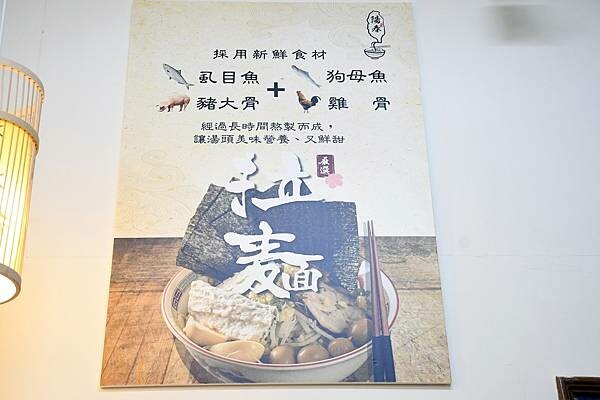 採用新鮮食材
虱目魚 + 狗母魚
豬大骨 雞骨
經過長時間熬製而成，
讓湯頭美味營養、又鮮甜
嚴選
拉麵